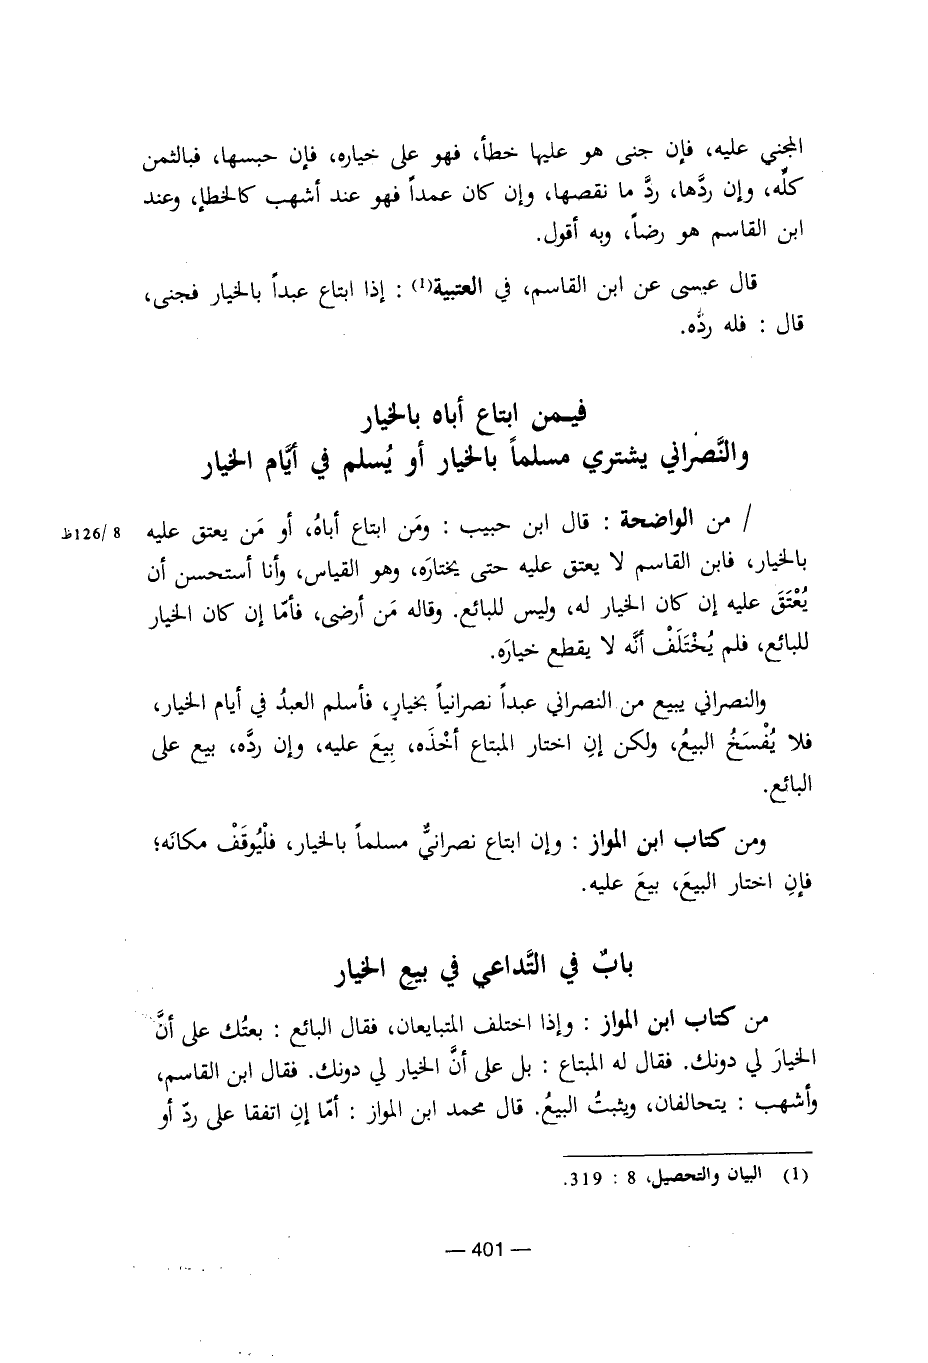 المجني عليه، فإن جنى هو عليها خطأ، فهو على خياره، فإن حبسها، فبالثمن
كلِّه، وإن ردَّها، ردَّ ما نقصها، وإن كان عمداً فهو عند أشهب كالخطإ، وعند
ابن القاسم هو رضاً، وبه أقول.
قال عيسى عن ابن القاسم، في العتبية(1) : إذا ابتاع عبداً بالخيار فجنى،
قال : فله ردُّه.
فيـمن ابتاع أباه بالخيار
والنَّصْراني يشتري مسلماً بالخيار أو يُسلم في أيَّام الخيار
/ من الواضحة : قال ابن حبيب : ومَن ابتاع أباهُ، أو مَن يعتق عليه
8 /126ظ
بالخيار، فابن القاسم لا يعتق عليه حتى يختارَه، وهو القياس، وأنا أستحسن أن
يُعْتَقَ عليه إن كان الخيار له، وليس للبائع. وقاله مَن أرضى، فأمّا إن كان الخيار
للبائع، فلم يُخْتَلَفْ أنَّه لا يقطع خيارَه.
والنصراني يبيع من النصراني عبداً نصرانياً بخيارٍ، فأسلم العبدُ في أيام الخيار،
فلا يُفْسَخُ البيعُ، ولكن إنِ اختار المبتاع أخْذَه، بِيعَ عليه، وإن ردَّه، بيع على
البائع.
ومن كتاب ابن المواز : وإن ابتاع نصرانيٌّ مسلماً بالخيار، فلْيُوقَفْ مكانَه؛
فإنِ اختار البيعَ، بيعَ عليه.
بابٌ في التَّداعي في بيعِ الخيار
من كتاب ابن المواز : وإذا اختلف المتبايعان، فقال البائع : بعتُك على أنَّ
الخيارَ لي دونك. فقال له المبتاع : بل على أنَّ الخيار لي دونك. فقال ابن القاسم،
وأشهب : يتحالفان، ويثبتُ البيعُ. قال محمد ابن المواز : أمّا إنِ اتفقا على ردّ أو
(1) البيان والتحصيل، 8 : 319.
— 401 —